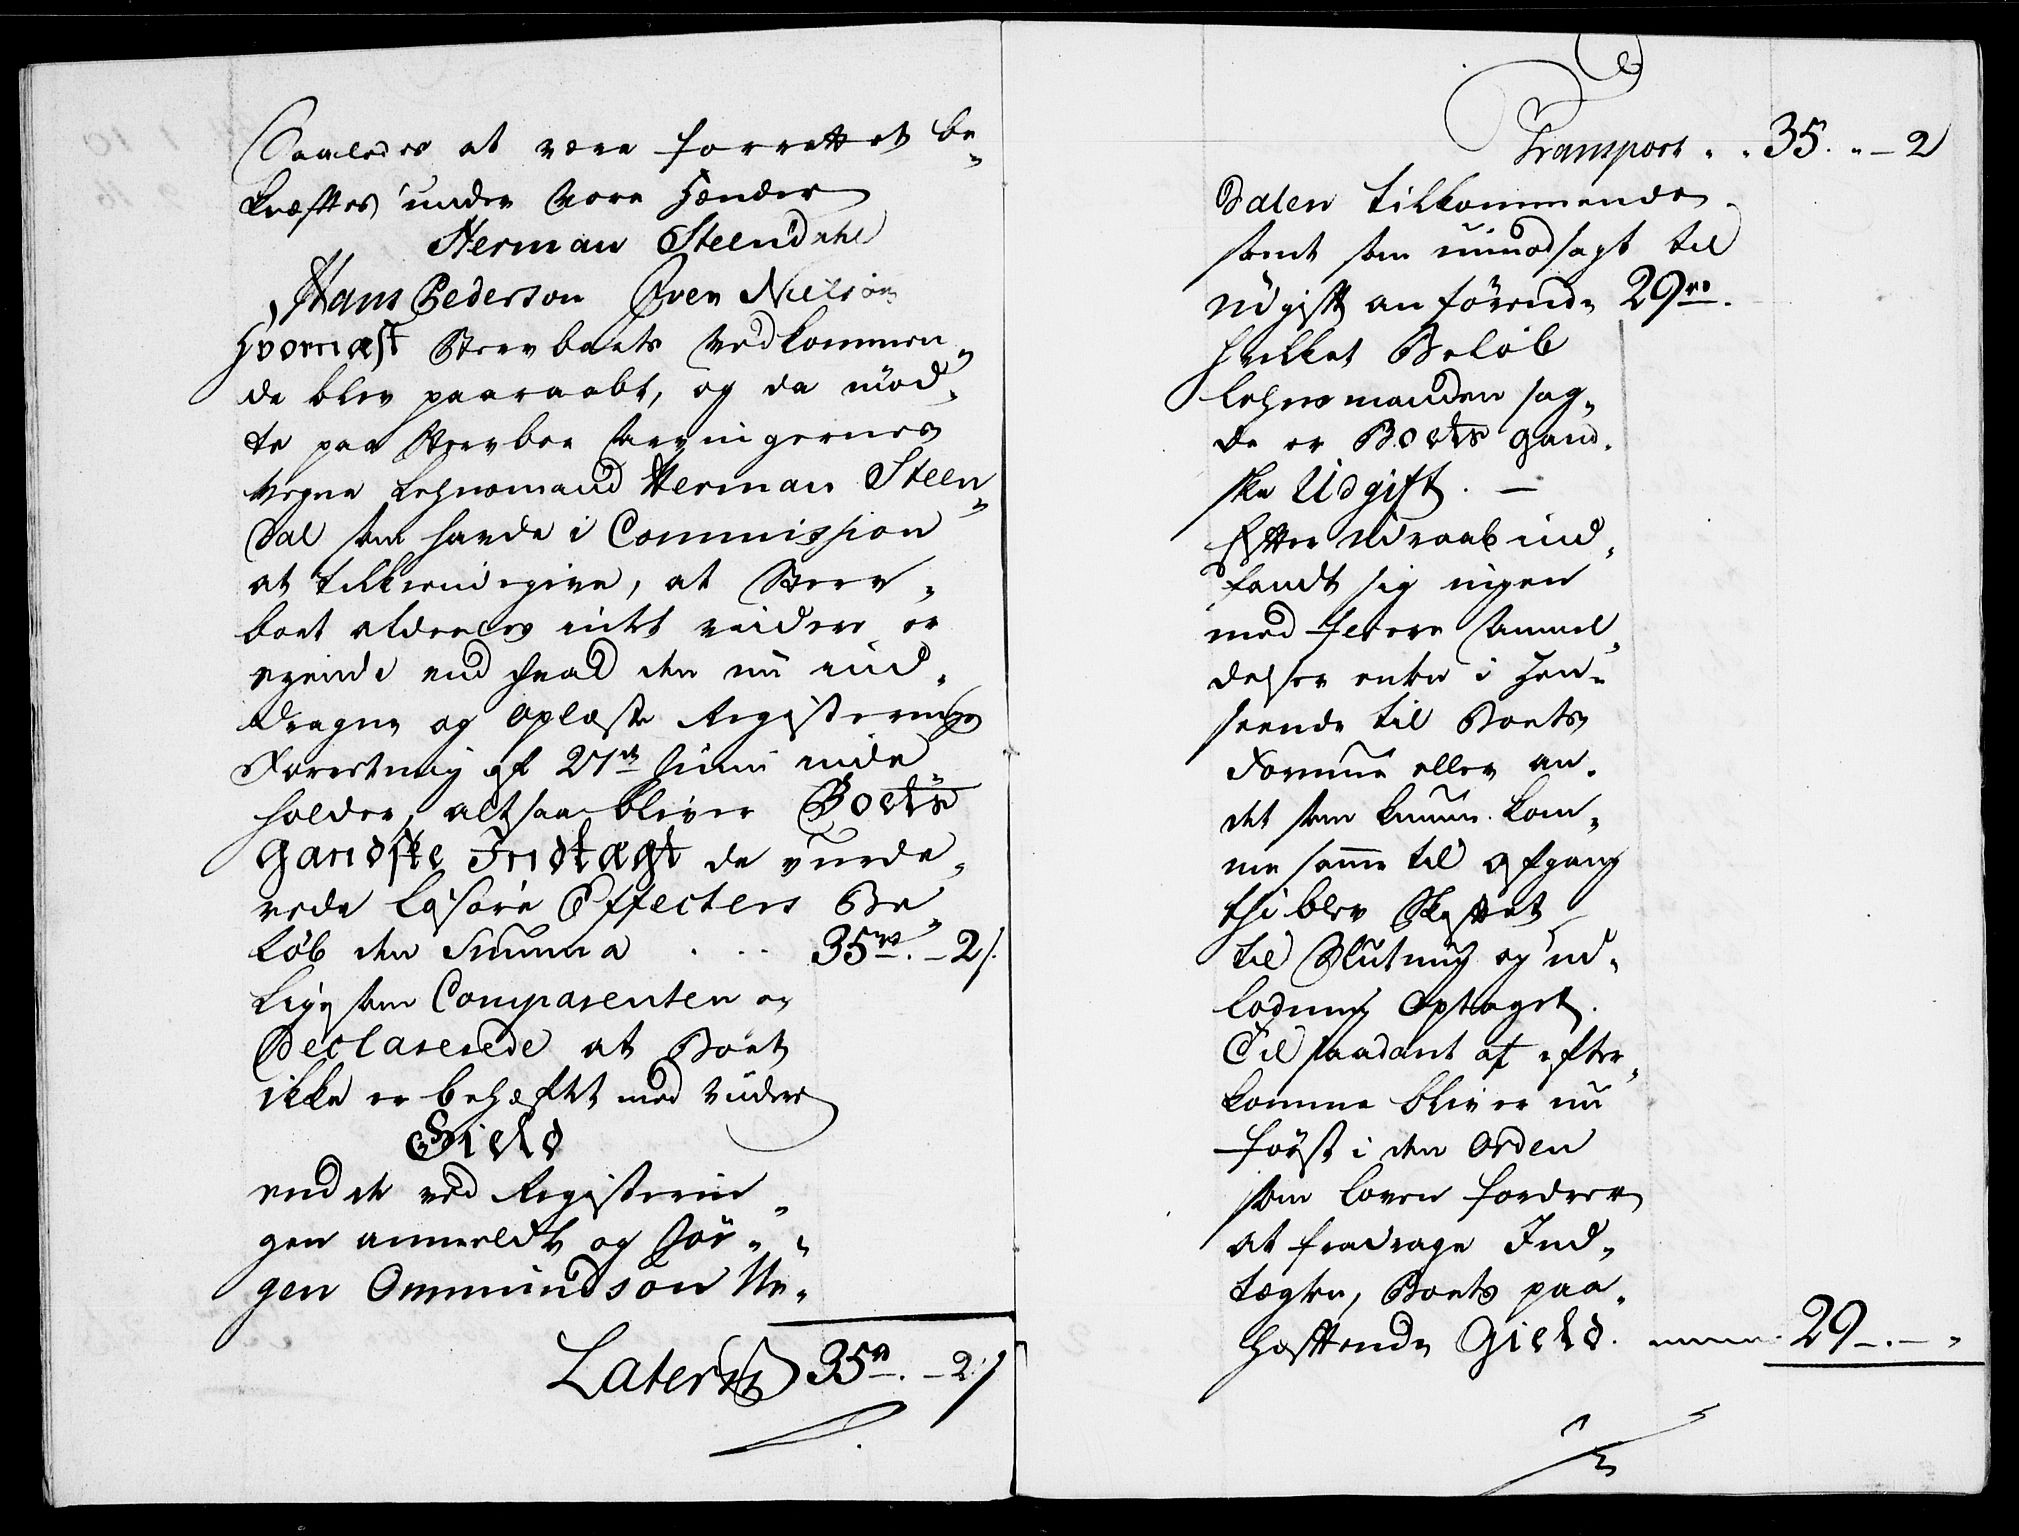 Saaledes at være forrettet be„
kræftes under vore Hænder
Herman Steendahl
Hans Pederson Sven Nielson
Hvornæst Stervboets vedkommen„
de blev paaraabt, og da mød„
te paa Stervboe Arvingernes
vegne Lehnsmand Herman Steen„
dal som havde i Commission
at tilkiendegive, at Sterv„
boet aldeeles intet viidere er
eyende end hvad den nu ind„
dragne og oplæste Registerings
Forretning af 27de Junii inde„
holder, altsaa bliver Boets
Gandske Indtægt de vurde„
rede Løsøre Effecters Be„
løb den Summa . . . 35rd. – 2s.
Lige som Comparenten og
Declarerede at Boet
ikke er behæftet med viidere
Gield
end de ved Registerin„
gen anmeldte og Jør„
gen Ommundsøn Ne„
Lateris 35rd. – 2s
Transport „ „ 35. „ – 2
dalen tilkommende
samt som uimodsagt til
Udgift anførende 29rd.
hvilket Beløb
Lehnsmanden sag„
de er Boets gand„
ske Udgift. —
Efter Udraab ind„
fandt sig ingen
med fleere Anmel„
delser enten i Hen„
seende til Boets
Formue eller an„
det som kunne kom„
me samme til Afgang
thi blev Skiftet
til Slutning og ud„
lodning Optaget.
Til saadant at efter„
komme bliver nu
først i den Orden
som Loven fordrer
at fradrage Ind„
tægten, Boets paa„
hæftende Gield. 29 –. – „